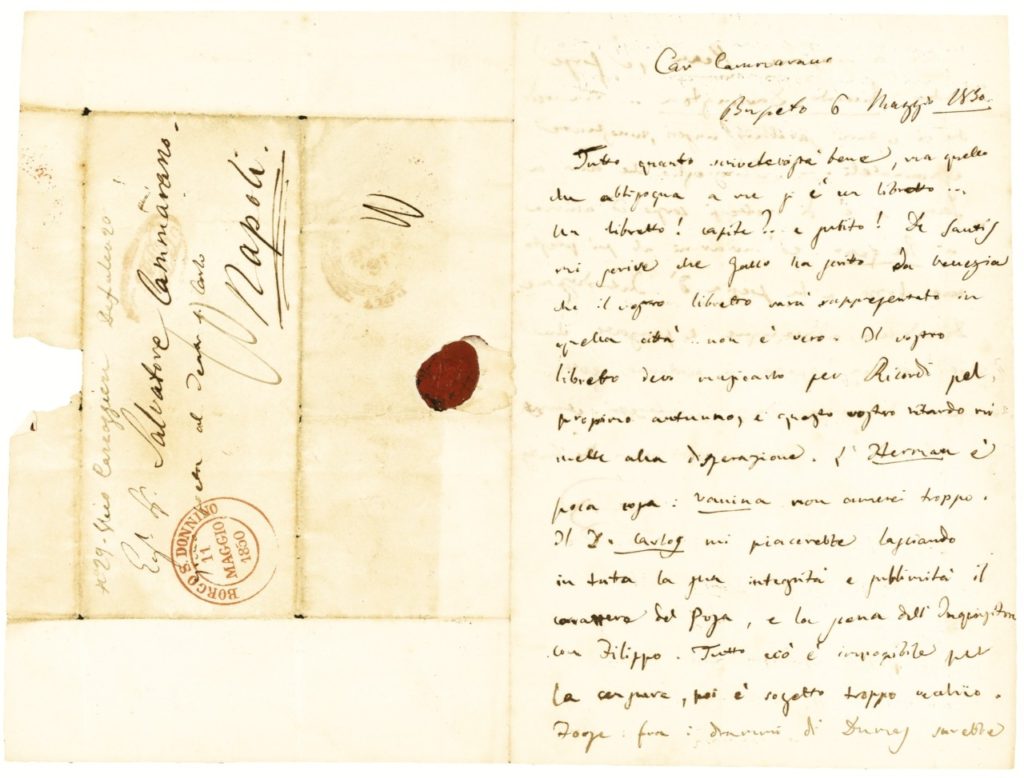 Car Cammarano
Busseto 6 Maggio 1850.
Tutto quanto scrivete stà bene, ma quello
che abbisogna a me si è un libretto ...
Un libretto! capite? .. e subito! De Santis
mi scrive che Gallo ha scritto da Venezia
che il vostro libretto sarà rappresentato in
quella città .. non è vero. Il vostro
libretto devo musicarlo per Ricordi pel
prossimo autunno, e questo vostro ritardo mi
mette alla disperazione. L' Herman è
poca cosa: Vanina non amerei troppo.
Il D. Carlos mi piacerebbe lasciando
in tutta la sua integrità e sublimità il
carattere del Posa, e la scena dell' Inquisitore
con Filippo. Tutto ciò è impossibile per
la censura, poi è sogetto troppo
fra i drammi di Dumas sarebbe
Salvatore Cammarano.
Napoli.
BORGO S. DONNINO
11
MAGGIO
1850